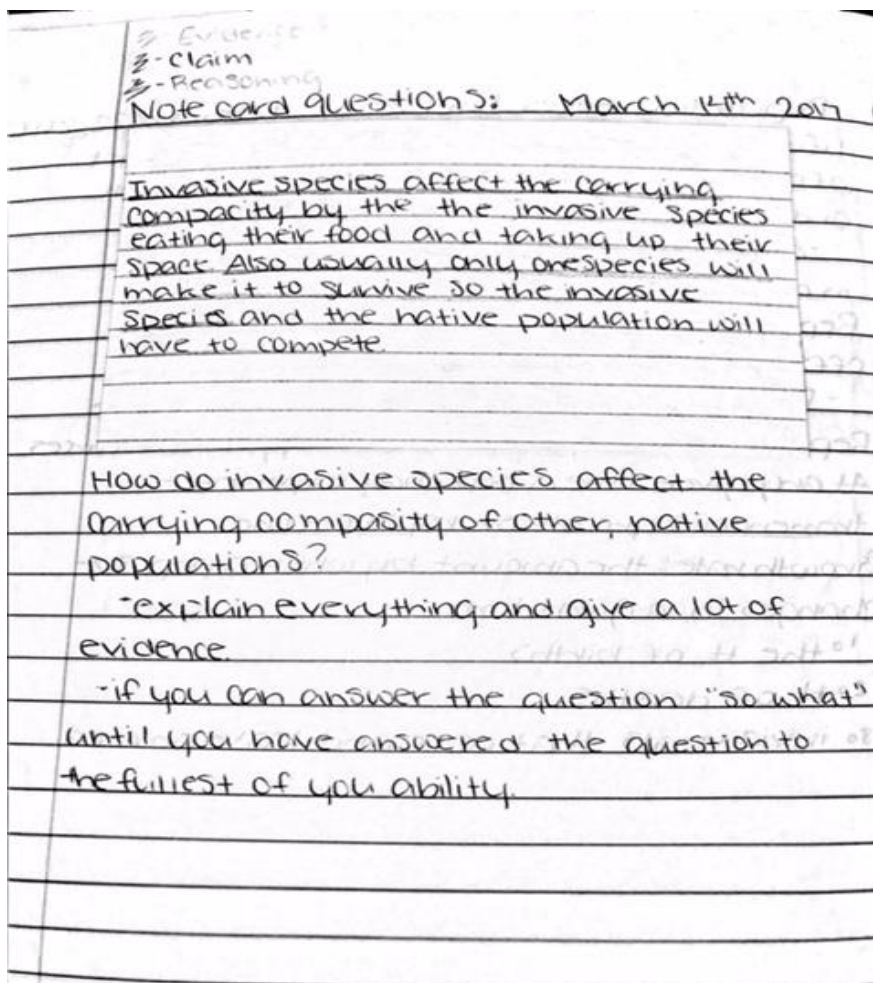 - Evidence
- Claim
- Reasoning
Note card questions: March 14th 2017
Invasive species affect the carrying
compacity by the the invasive species
eating their food and taking up their
space. Also usually only one species will
make it to survive so the invasive
species and the native population will
have to compete.
How do invasive species affect the
carrying compasity of other, native
populations?
- explain everything and give a lot of
evidence.
- if you can answer the question "so what"
until you have answered the question to
the fullest of you ability.